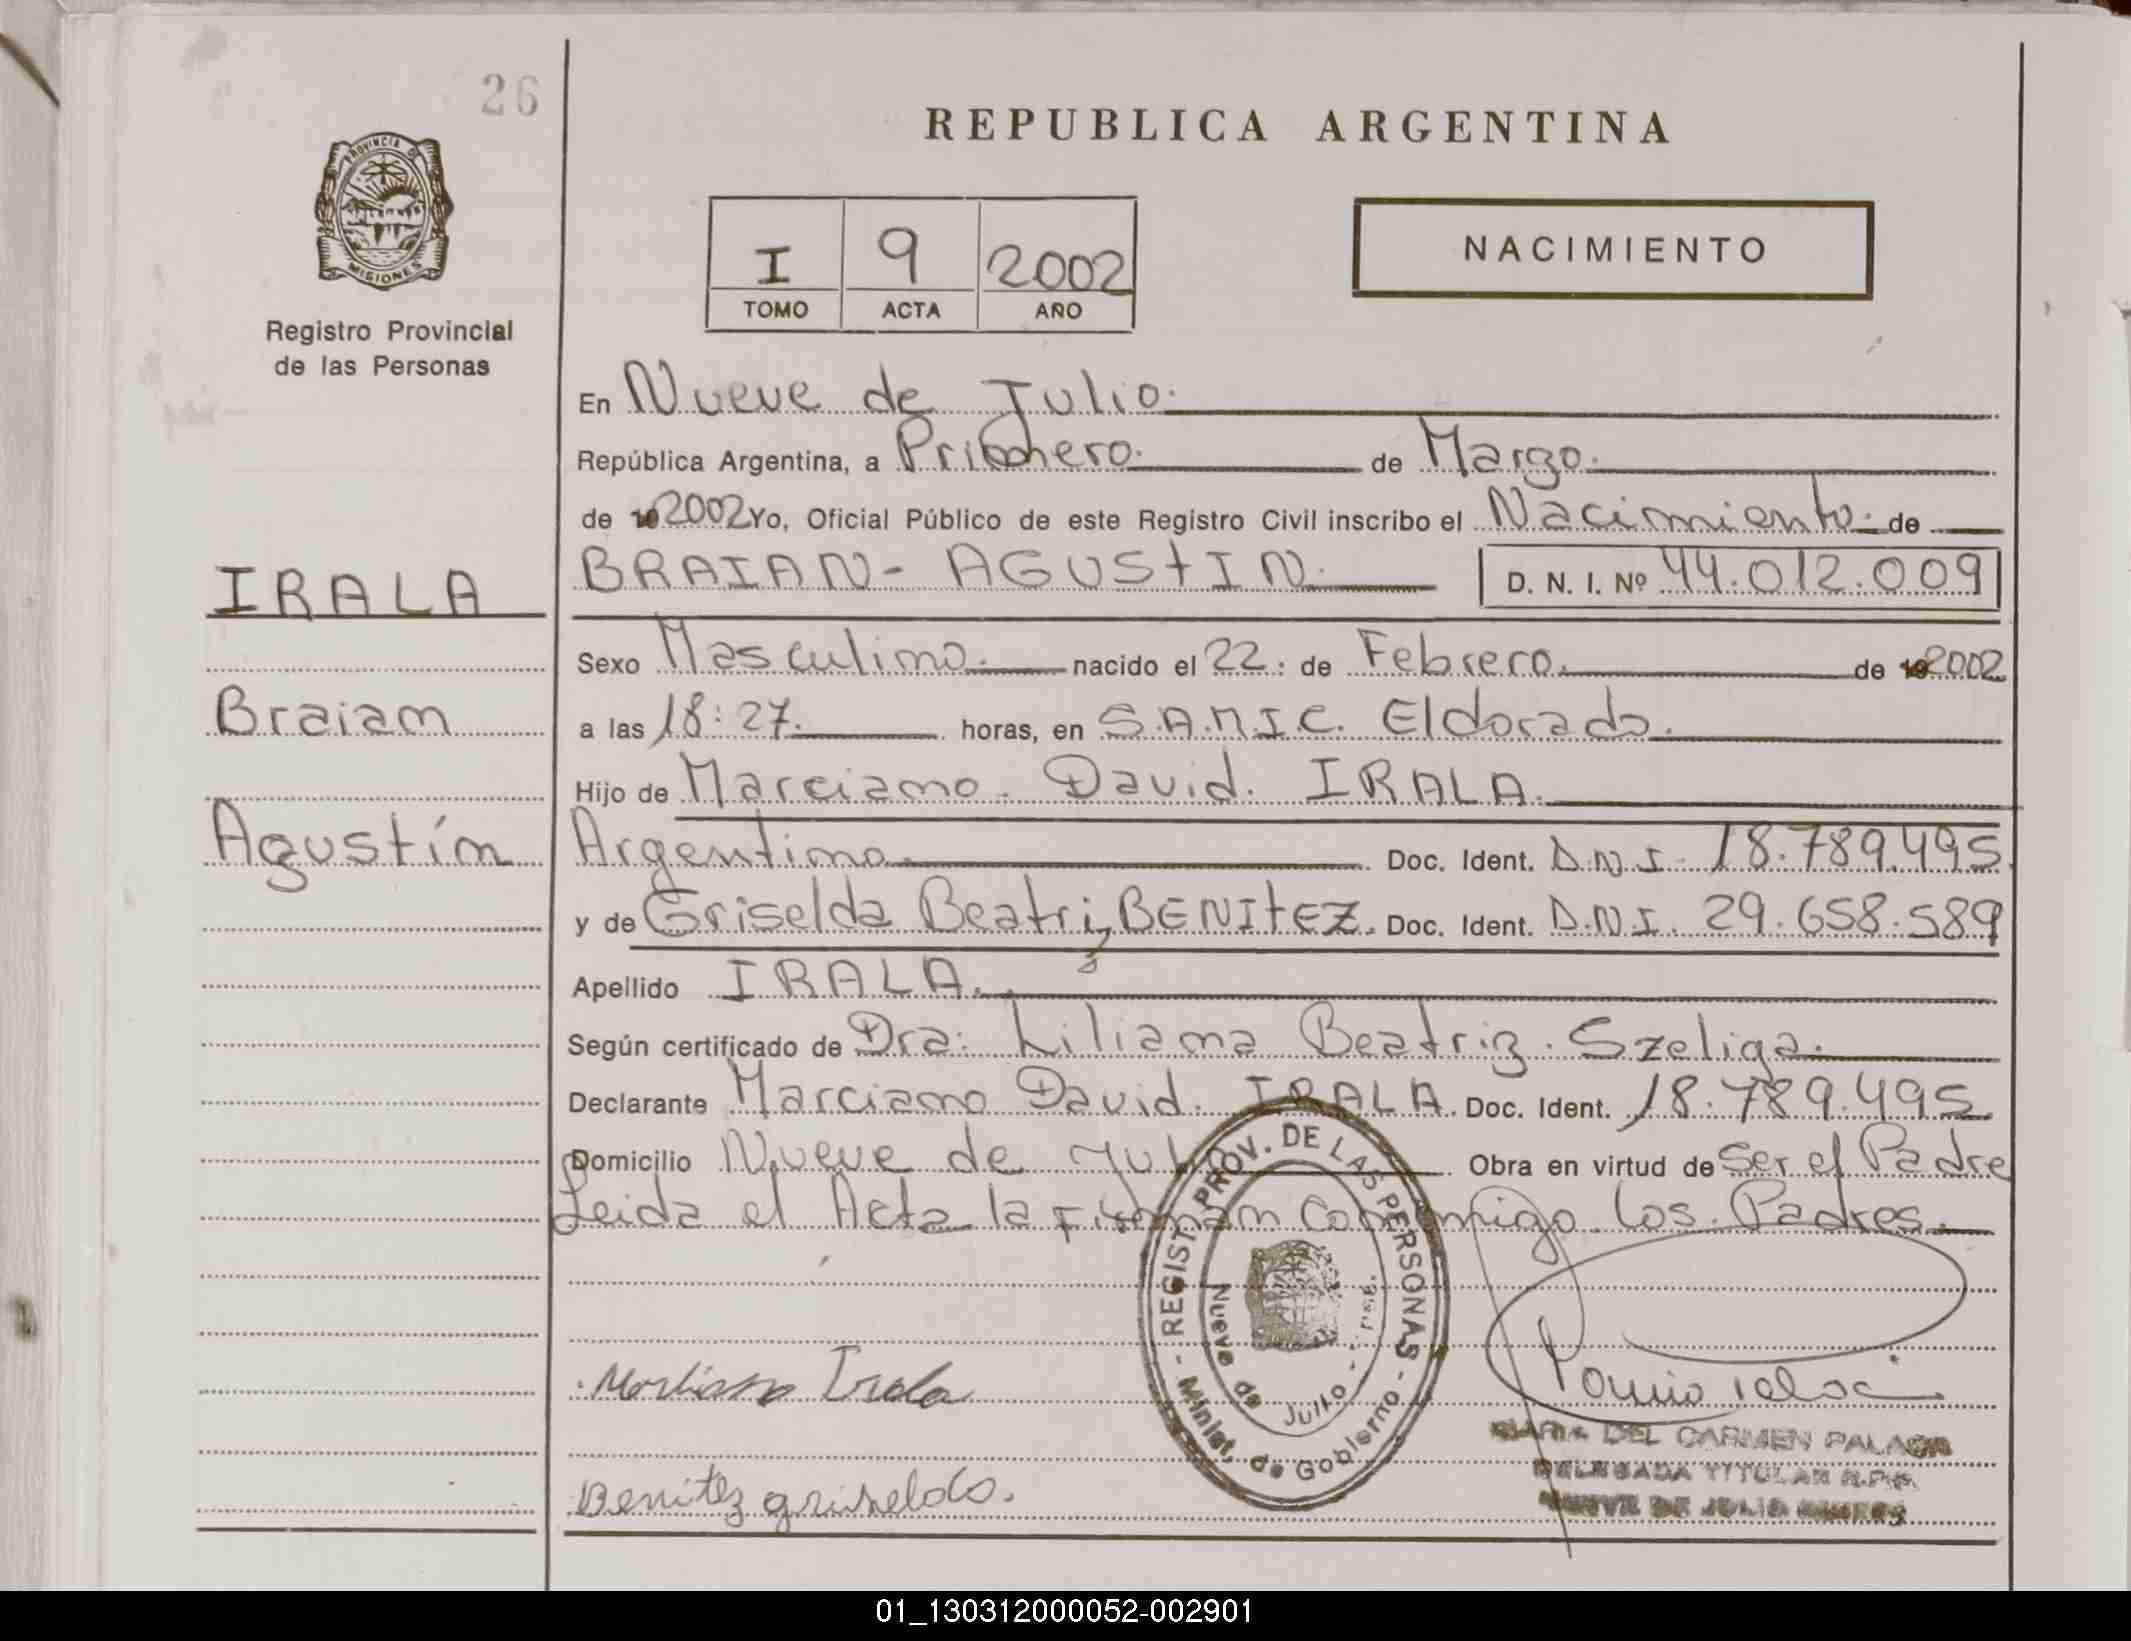 26
REPUBLICA ARGENTINA
PROVINCIA DE
MISIONES
Registro Provincial
de las Personas
I 9 2002
TOMO ACTA AÑO
NACIMIENTO
En Nueve de Julio.
República Argentina, a Primero. de Marzo.
de 19 2002 Yo, Oficial Público de este Registro Civil inscribo el Nacimiento. de
IRALA
BRAIAN- AGUSTIN. D. N. I. Nº 44.012.009
Sexo Masculino. nacido el 22: de Febrero. de 19 2002
Braian
a las 18:27. horas, en S.A.M.I.C. Eldorado.
Hijo de Marciano. David. IRALA.
Agustín
Argentino. Doc. Ident. D.N.I. 18.789.495
y de Griselda Beatriz BENITEZ. Doc. Ident. D.N.I. 29.658.589
Apellido IRALA.
Según certificado de Dra: Liliana Beatriz. Szeliga.
Declarante Marciano David. IRALA. Doc. Ident. 18.789.495
Domicilio Nueve de Jul Obra en virtud de Ser el Padre
Leida el Acta la Firman conmigo los Padres.
REGIST. PROV. DE LAS PERSONAS - Minist. de Gobierno -
Nueve de Julio - Mnes.
Irala
MARIA DEL CARMEN PALACIO
DELEGADA TITULAR R.P.P.
NUEVE DE JULIO MNES
Benitez griselda.
01_130312000052-002901